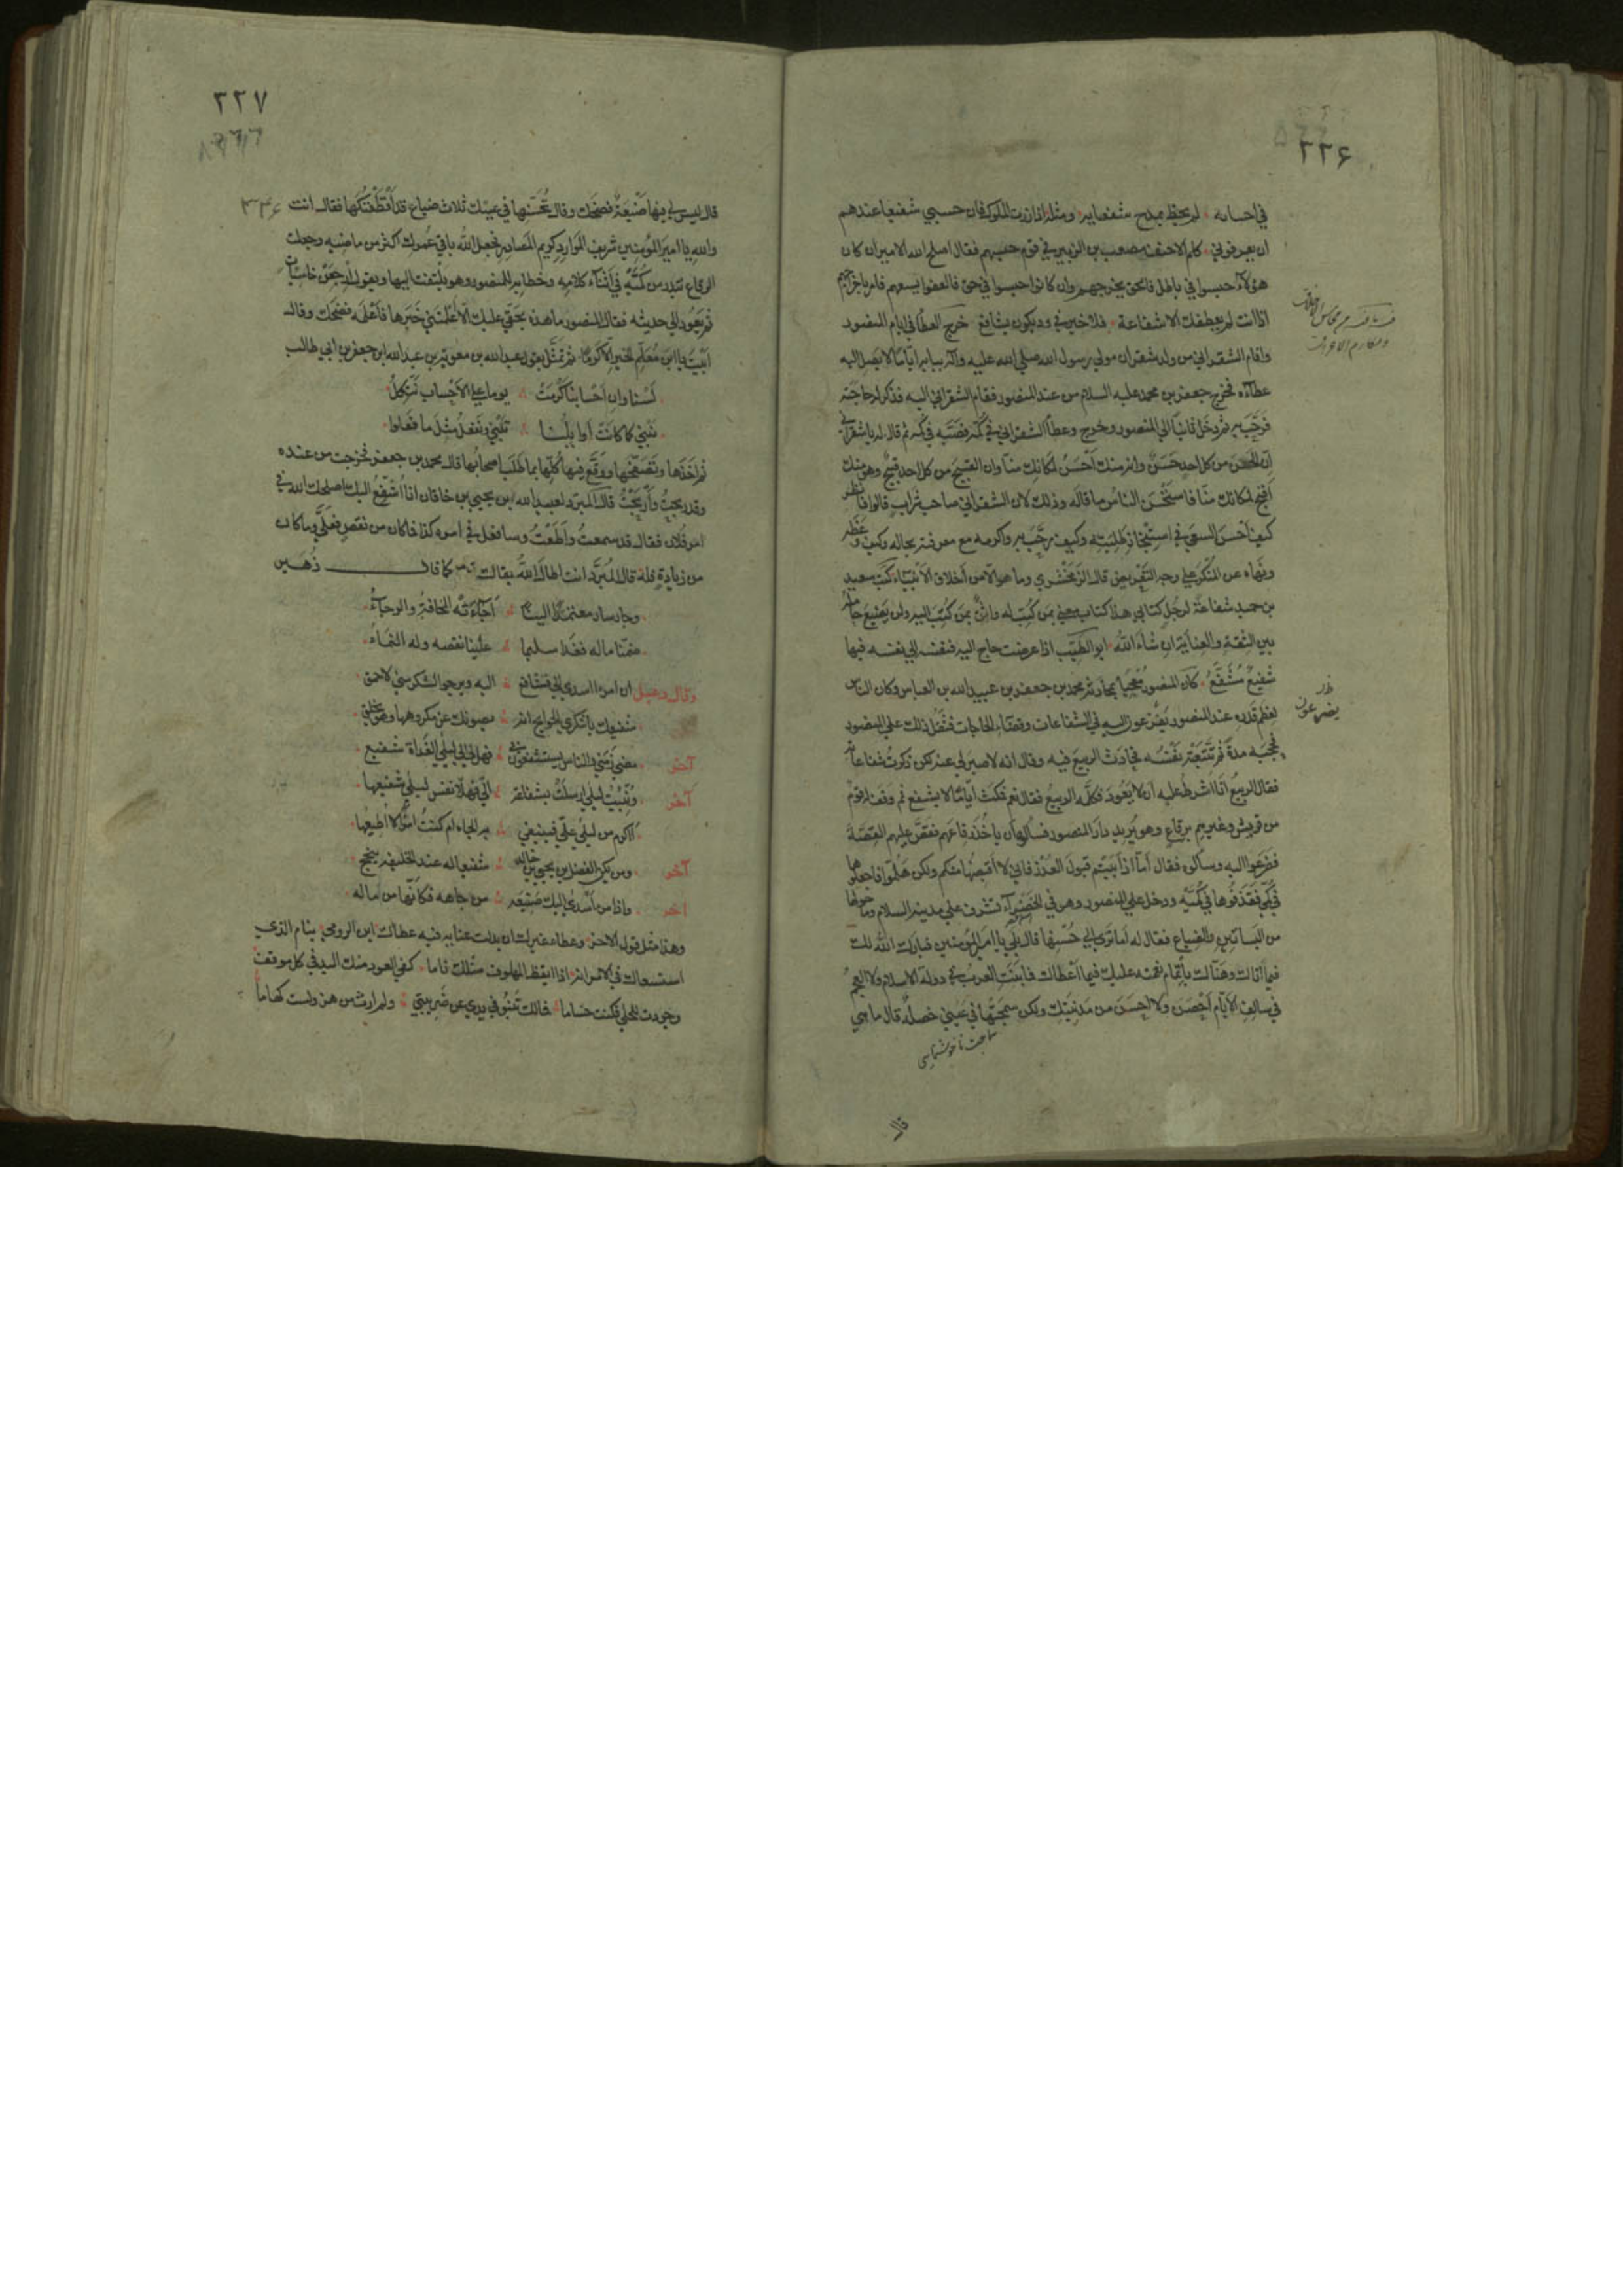 ٢٢۶
في احسابه لم يحظ بمدح شفعايه ومثله اذا زرت الملوك فان حسبي شفيعا عندهم
ان يعرفوني كلم الاحنف مصعب بن الزبير في قوم حبسهم فقال اصلح الله الامير ان كان
هؤلاء حبسوا في باطل فالحق يخرجهم وان كانوا حبسوا في حق فالعفو يسعهم فامر باخراجهم
اذا انت لم يعطفك الا شفاعة فلا خير في ود يكون بشافع خرج العطا في ايام المنصور
واقام الشقراني من ولد شقران مولي رسول الله صلي الله عليه وآله ببابه اياما لا يصل اليه
عطاؤه فخرج جعفر بن محمد عليه السلام من عند المنصور فقام الشقراني اليه فذكر له حاجته
فرحّب به ثم دخل ثانيا الي المنصور وخرج وعطاء الشقراني في كمه فصبّه في كمه ثم قال له يا شقراني
انّ الحسن من كل احد حَسَنٌ وانه منك اَحْسَنُ لمكانك منا وان القبيح من كل احد قبيح وهو منك
اَقبح لمكانك منّا فاستحسن الناس ما قاله وذلك لان الشقراني صاحب شراب قالوا فانظر
كيف اَحْسَنَ السعي في استنجاز طلبته وكيف رحّب به واكرمه مع معرفته بحاله وكيف وعظه
ونهاه عن المنكر علي وجه التعريض قال الزمخشري وما هو الا من اخلاق الانبياء كتب سعيد
بن حميد شفاعة لرجل كتابي هذا كتاب معني بمن كُتِبَ له واثقٌ بمن كُتِبَ اليه ولن يضيع حامله
بين الثقة والعناية ان شاء الله ابو الطيّب اذا عرضت حاج اليه فنفسه الي نفسه فيها
شفيعٌ مُشَفَّعُ كان المنصور مُعْجَباً بمحادثة محمد بن جعفر بن عبيد الله بن العباس وكان الناس
لعظم قدره عند المنصور يفزعون اليه في الشفاعات وقضاء الحاجات فثقل ذلك علي المنصور
فحجبه مدة ثم تتبّعته نفسُه فحادث الربيع فيه وقال انه لا صبر لي عنه لكن ذكرت شفاعاته
فقال الربيع انا اشرط عليه ان لا يعود فكلّمه الربيع فقال نعم فمكث ايّامًا لا يشفع ثم وقف له قوم
من قريش وغيرهم برقاع وهو يريد دار المنصور فسألوه ان ياخُذَ رقاعهم فقصّ عليهم القصة
فضرعوا اليه وسألوه فقال اَمَّا اذا اَبَيتم قبولَ العُذر فاني لا اقبضها منكم ولكن هَلُمّوا فاجعلوها
في كمّي فقذفوها في كُمّيْه ودخل علي المنصور وهو في الخضراء تشرف علي مدينة السلام وما حولها
من البساتين والضياع فقال له اما تري الي حسنها قال بلي يا امير المؤمنين فبارك الله لك
فيما اتاك وهنّاك باتمام نعمته عليك فيما اعطاك فما بَنَتِ العرب في دولة الاسلام ولا العجم
في سالف الايّام اَحْصَنَ ولا اَحسَنَ من مَدينتك ولكن سمّجتها في عيني خصلة قال ما هي
قال
يضرعون
٢٢٧
قال ليس لي فيها ضَيْعَةٌ فضحك وقال تُحَسّنها في عينك ثلاث ضياع قد اَقْطَعْتُكَها فقال انت
والله يا امير المؤمنين شريف الموارد كريم المصادر فجعل الله باقي عُمرك اكثر من ماضيه وجعلت
الرقاع تبدر من كُمّيْه في اَثناء كلامه وخطابه للمنصور وهو يلتفت اليها ويقول اِرجعن خاسئات
ثم يعود الي حديثه فقال المنصور ما هذه بحقي عليك الا اعلمتني خَبَرَها فاَعْلَمَه فضحك وقال
اَبَيْتَ يا ابن مُعلّم الخير الّا كَرَمًا ثم تمثّل بقول عبد الله بن معوية بن عبد الله ابن جعفر بن ابي طالب
لَسْنا وان اَحْسابنا كَرُمَتْ يوما علي الاَحْساب نتّكِلُ
نبني كما كانت اوايلُنا تَبْني ونفعلُ مثلَ ما فعلوا
ثم اَخَذَها وتَصَفّحها ووَقّعَ فيها كُلّها بما طَلَبَ اصحابُها قال محمد بن جعفر فخرجت من عنده
وقد ربحتُ واَرْبَحْتُ قال المبرّد لعبيد الله بن يحيي بن خاقان انا اُشَفّعُ اليك اصلحك الله في
امر فلان فقال قد سمعتُ واَطَعْتُ وسافعل في امره كذا فما كان من نقص فعَلَيَّ وما كان
من زيادة فله قال المُبَرّد انت اطال الله بقاك كما قال زُهَير
وجار سار معتمدًا الينا اَجاءَتْه المخافةُ والرجاءُ
ضمنّا ماله فغدا سليما علينا نقصه وله النماءُ
وقال دعبل ان امرءا اسدي اليّ بشافع اليه ويرجو الشكر منّي لاحمق
شفيعك يا شكري الحوايج انه يصونك عن مكروهها وهو يخلق
آخر مضي زمني والناس يستشفعون بي فهل لي الي ليلي الغداة شفيع
آخر ونُبّيتُ ليلي ارسلت بشفاعة اليّ فهلّا نفس ليلي شفيعها
أاكرم من ليلي عليّ فيبتغي به الجاه ام كنتُ امرأً لا اُطيعُها
آخر ومن يكن الفضل بن يحيي بن خالد شفيعا له عند الخليفة ينجح
اخر واذا من اَسْدَي اليك صنيعة من جاهه فكانّها من ماله
وهذا مثل قول الاخر وعطاء غيرك ان بذلت عناية فيه عطاك ابن الرومي ينام الذي
استسعاك في الامر انه اذا ايقظ الملهوف مثلك ناما كفي العود منك البدو في كل موقف
وجودت للجلي فكنت حساما فمالك تَنْبُو في يدي عن ضريبتي ولم ارث من هز ولست كهاما